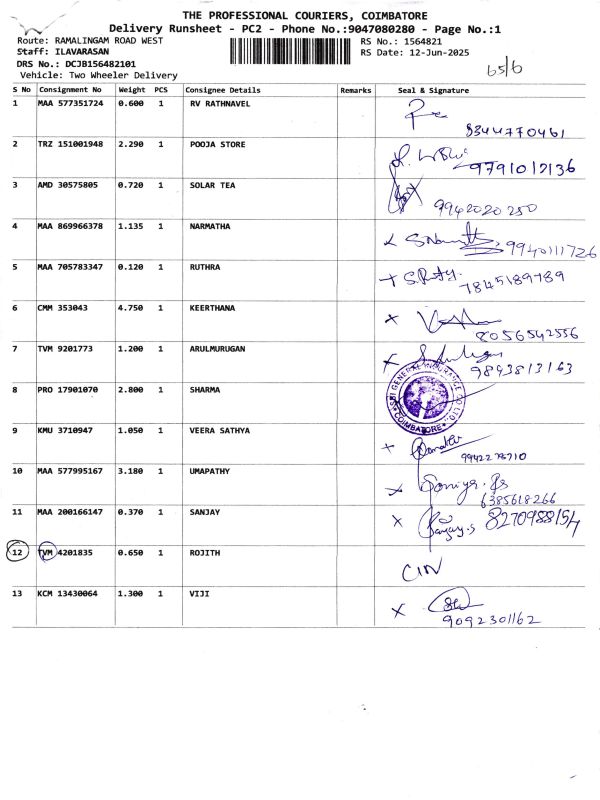 THE PROFESSIONAL COURIERS, COIMBATORE
Delivery Runsheet - PC2 - Phone No.:9047080280 - Page No.:1
Route: RAMALINGAM ROAD WEST RS No.: 1564821
Staff: ILAVARASAN RS Date: 12-Jun-2025
DRS No.: DCJB156482101
Vehicle: Two Wheeler Delivery 65/6
S No Consignment No Weight PCS Consignee Details Remarks Seal & Signature
1 MAA 577351724 0.600 1 RV RATHNAVEL
8344770461
2 TRZ 151001948 2.290 1 POOJA STORE
9791012136
3 AMD 30575805 0.720 1 SOLAR TEA
9942020250
4 MAA 869966378 1.135 1 NARMATHA
9940111726
5 MAA 705783347 0.120 1 RUTHRA
7845189789
6 CMM 353043 4.750 1 KEERTHANA
8056542556
7 TVM 9201773 1.200 1 ARULMURUGAN
9843813163
8 PRO 17901070 2.800 1 SHARMA
SBI GENERAL INSURANCE CO LTD. COIMBATORE
9 KMU 3710947 1.050 1 VEERA SATHYA
10 MAA 577995167 3.180 1 UMAPATHY
6385618266
11 MAA 200166147 0.370 1 SANJAY
Sanjay.s 8270988154
12 TVM 4201835 0.650 1 ROJITH
13 KCM 13430064 1.300 1 VIJI
9092301162